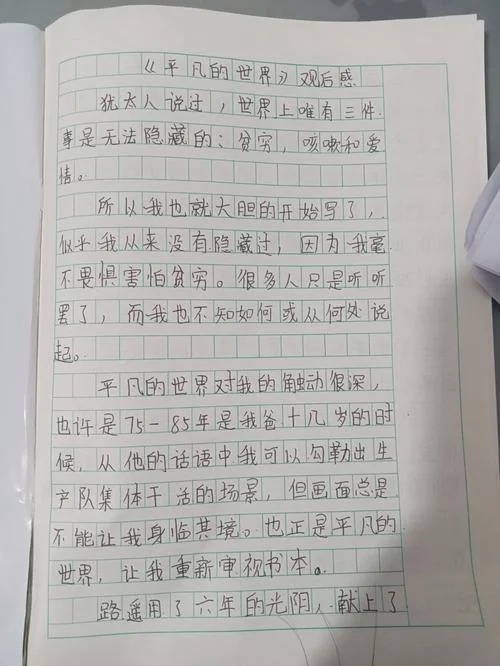 《平凡的世界》观后感
犹太人说过，世界上唯有三件
事是无法隐藏的：贫穷，咳嗽和爱
情。
所以我也就大胆的开始写了，
似乎我从来没有隐藏过，因为我毫
不畏惧害怕贫穷。很多人只是听听
罢了，而我也不知如何或从何处说
起。
平凡的世界对我的触动很深，
也许是75-85年是我爸十几岁的时
候，从他的话语中我可以勾勒出生
产队集体干活的场景，但画面总是
不能让我身临其境。也正是平凡的
世界，让我重新审视书本。
路遥用了六年的光阴，献上了